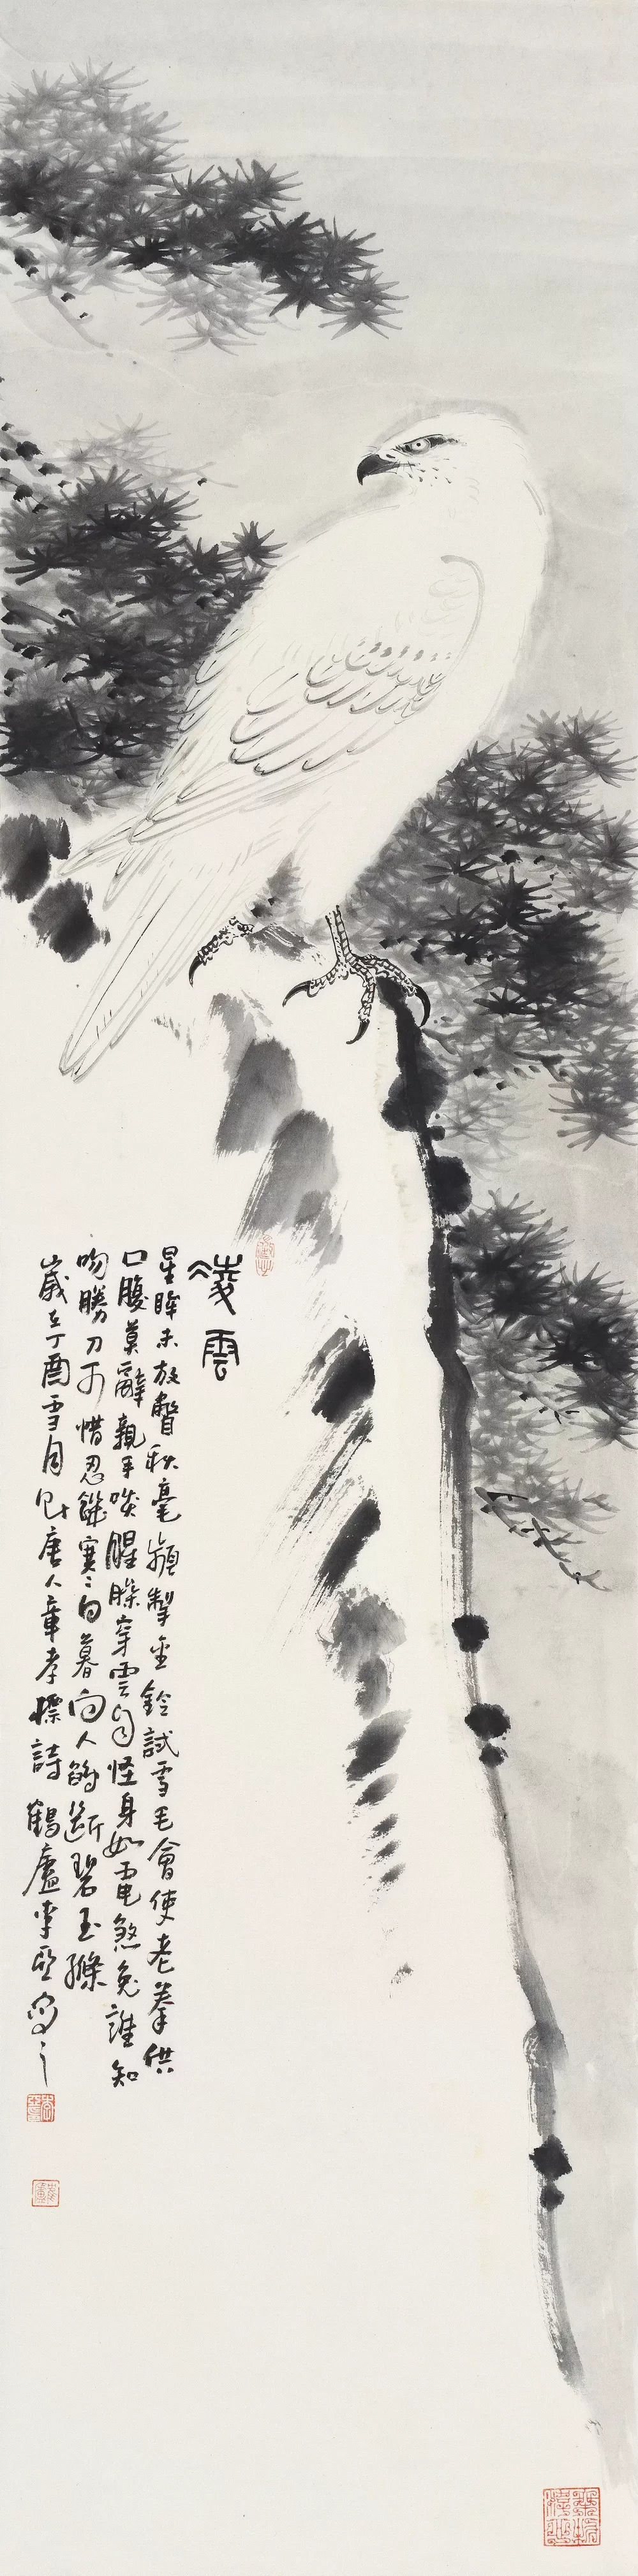 凌雲
星眸未放瞥秋毫頻掣金鈴試雪毛會使老拳供
口腹莫辭親手啖腥臊穿雲自怪身如電煞兔誰知
吻勝刀可惜忍饑寒日暮向人鵮斷碧玉絛
歲在丁酉雪月以唐人章孝標詩 鶴廬李亞寫之